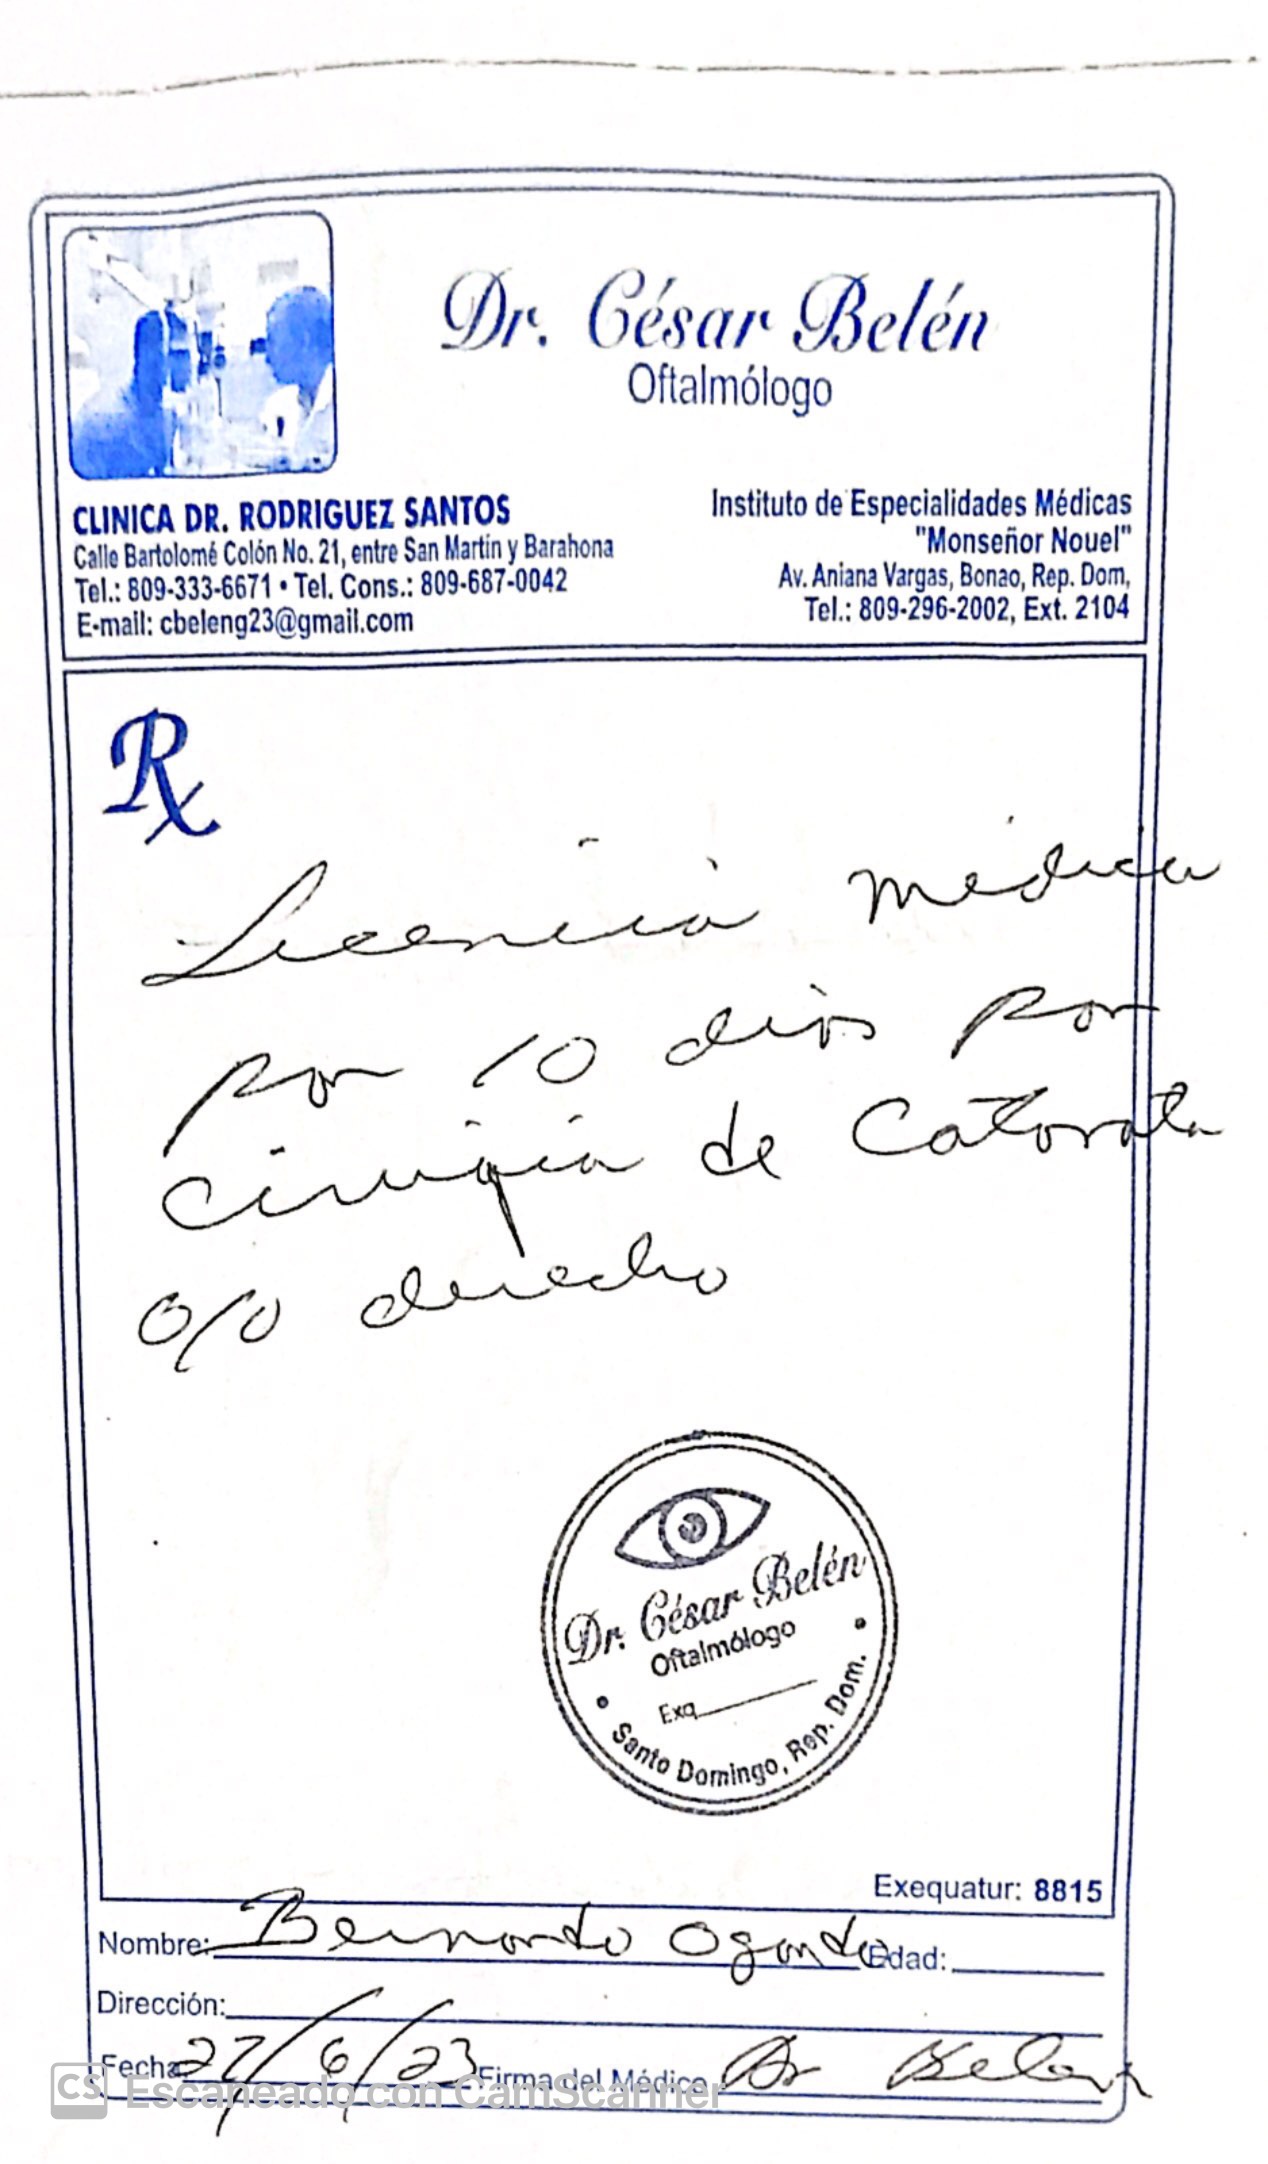 Dr. César Belén
Oftalmólogo
CLINICA DR. RODRIGUEZ SANTOS
Calle Bartolomé Colón No. 21, entre San Martin y Barahona
Tel.: 809-333-6671 • Tel. Cons.: 809-687-0042
E-mail: cbeleng23@gmail.com
Instituto de Especialidades Médicas
"Monseñor Nouel"
Av. Aniana Vargas, Bonao, Rep. Dom,
Tel.: 809-296-2002, Ext. 2104
Rx
Licencia médica
por 10 dias por
cirugia de Catarata
ojo derecho
Dr. César Belén
Oftalmólogo
Exq
• Santo Domingo, Rep. Dom. •
Exequatur: 8815
Nombre: Bernardo Ogando Edad:
Dirección:
Fecha 27/6/23 Firma del Médico Dr Belen
CS Escaneado con CamScanner